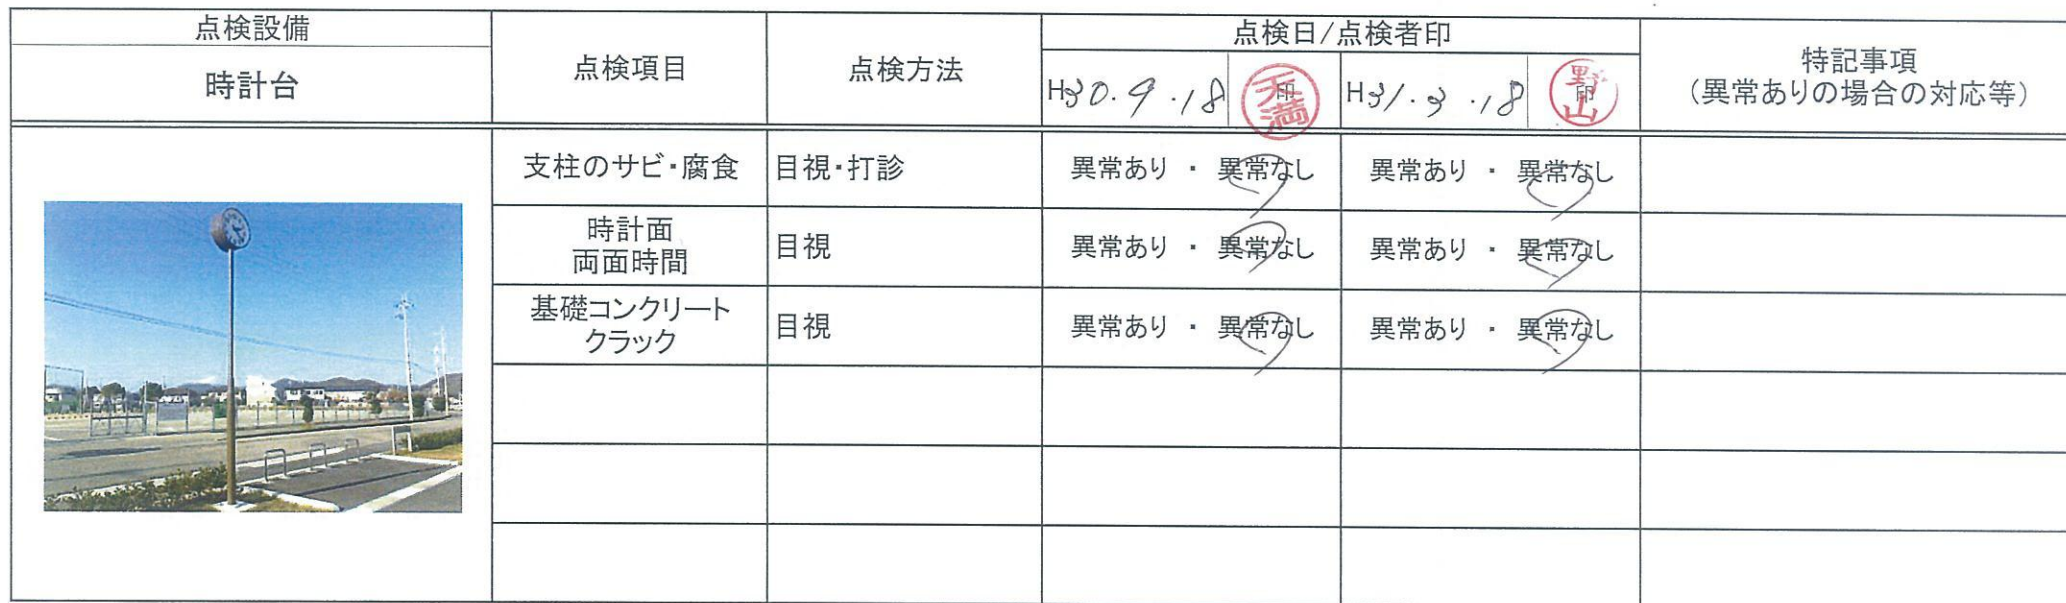 点検設備
点検項目
点検方法
点検日/点検者印
特記事項
(異常ありの場合の対応等)
時計台
H30.9.18 印 天満
H31.3.18 印 野山
支柱のサビ・腐食 目視・打診 異常あり ・ 異常なし 異常あり ・ 異常なし
時計面
両面時間
目視 異常あり ・ 異常なし 異常あり ・ 異常なし
基礎コンクリート
クラック
目視 異常あり ・ 異常なし 異常あり ・ 異常なし